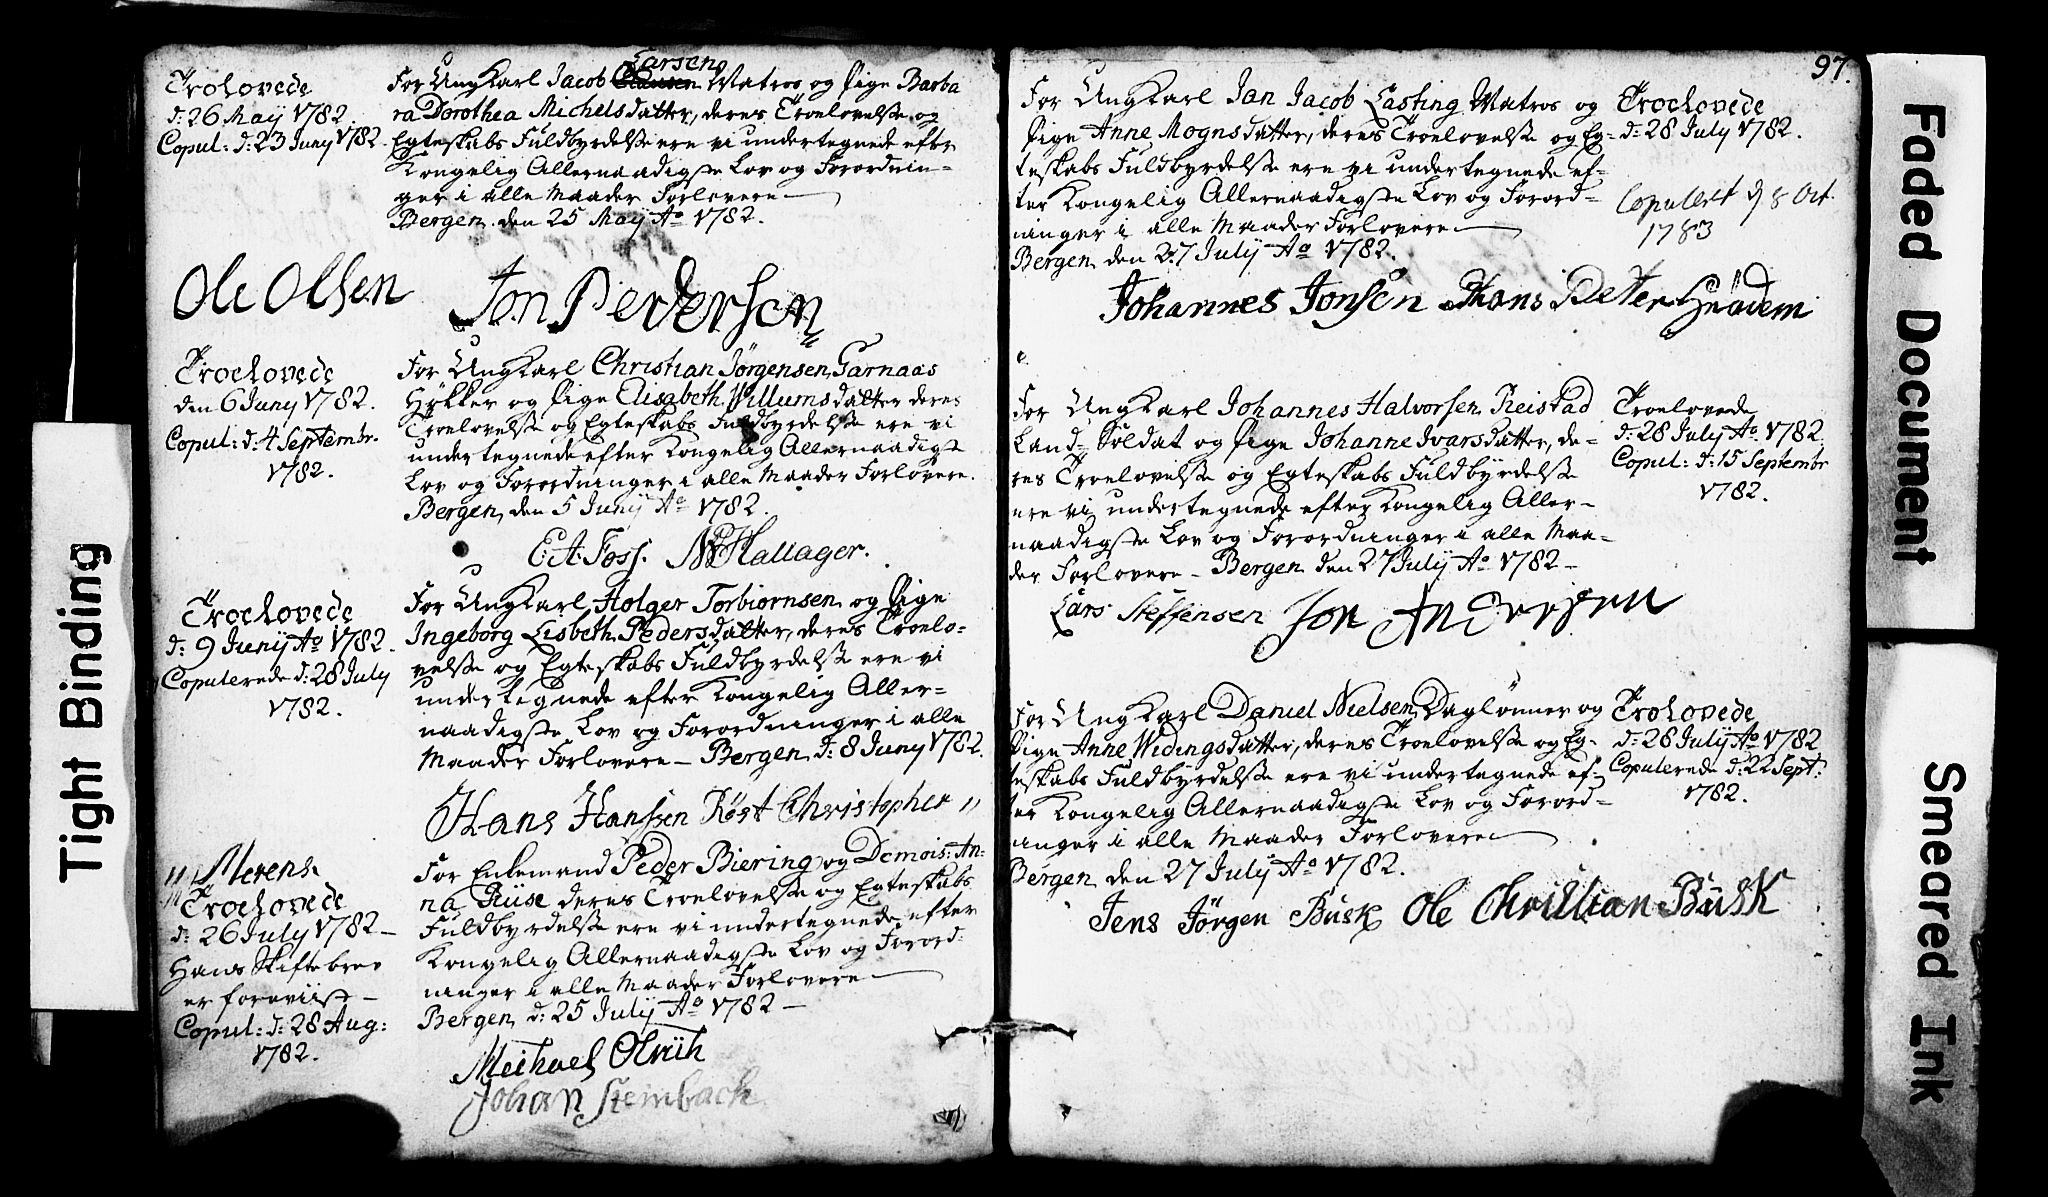 Tight Binding
Trolovede
d: 26 Maij 1782.
Copul: d: 23 Junij 1782.
Larsen
For UngKarl Jacob Clausen Matros og Pige Barba
ra Dorothea Michelsdatter, deres Troelovelse og
Egteskabs Fuldbyrdelse ere vi undertegnede efter
Kongelig Allernaadigste Lov og Forordnin-
ger i alle Maader Forlovere
Bergen den 25 Maij Ao 1782.
Ole Olsen Jon Pedersen
Troelovede
den 6 Junij 1782.
Copul: d: 4 Septembr.
1782.
For UngKarl Christian Jørgensen Garnaas
Høkker og Pige Elisabeth Willumsdatter deres
Troelovelse og Egteskabs Fuldbyrdelse ere vi
undertegnede efter Kongelig Allernaadigste
Lov og Forordninger i alle Maader Forlovere.
Bergen, den 5 Junij Ao 1782.
E. A. Foss. Hallager.
Troelovede
d: 9 Junij Ao 1782.
Copulerede d: 28 July
1782.
For UngKarl Holger Torbiørnsen og Pige
Ingeborg Lisbeth Pedersdatter, deres Troelo-
velse og Egteskabs Fuldbyrdelse ere vi
undertegnede efter Kongelig Aller-
naadigste Lov og Forordninger i alle
Maader Forlovere - Bergen d: 8 Junij 1782.
Hans Hanssen Röst Christopher //
// Merens
Troelovede
d: 26 July 1782 -
Hans Skiftebrev
er foreviist -
Copul: d: 28 Aug:
1782.
For Enkemand Peder Biering og Demois: An-
na Riise deres Troelovelse og Egteskabs
Fuldbyrdelse ere vi undertegnede efter
Kongelig Allernaadigste Lov og Forord-
ninger i alle Maader Forlovere
Bergen d: 25 Julij Ao 1782 -
Michael
Johan Steinbach
97.
For UngKarl Jan Jacob Lasting Matros og
Pige Anne Mognsdatter, deres Troelovelse og Eg-
teskabs Fuldbyrdelse ere vi undertegnede ef-
ter Kongelig Allernaadigste Lov og Forord-
ninger i alle Maader Forlovere
Bergen den 27 Julij Ao 1782.
Troelovede
d: 28 July 1782.
Copulert d 8 Oct.
1783
Johannes Jonsen Hans Peter
For UngKarl Johannes Halvorsen Reistad
Land-Soldat og Pige Johanne Ivarsdatter, de-
res Troelovelse og Egteskabs Fuldbyrdelse
ere vi undertegnede efter Kongelig Aller-
naadigste Lov og Forordninger i alle Maa-
der Forlovere - Bergen den 27 Julij Ao 1782 -
Troelovede
d: 28 July Ao 1782.
Copul: d: 15 Septembr
1782.
Lars Steffensen Jon Andersen
For UngKarl Daniel Nielsen Daglønner og
Pige Anne Widingsdatter, deres Troelovelse og Eg-
teskabs Fuldbyrdelse ere vi undertegnede ef-
ter Kongelig Allernaadigste Lov og Forord-
ninger i alle Maader Forlovere
Bergen den 27 Julij Ao 1782.
Trolovede
d: 28 Julij Ao 1782
Copulerede d: 22 Sept:
1782.
Jens Jörgen Busk Ole Christian Busk
Faded Document
Smeared Ink